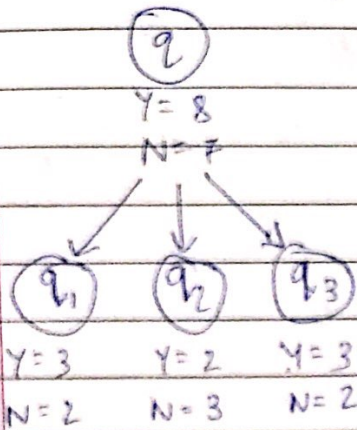 q
Y = 8
N = 7
q1 q2 q3
Y = 3 Y = 2 Y = 3
N = 2 N = 3 N = 2